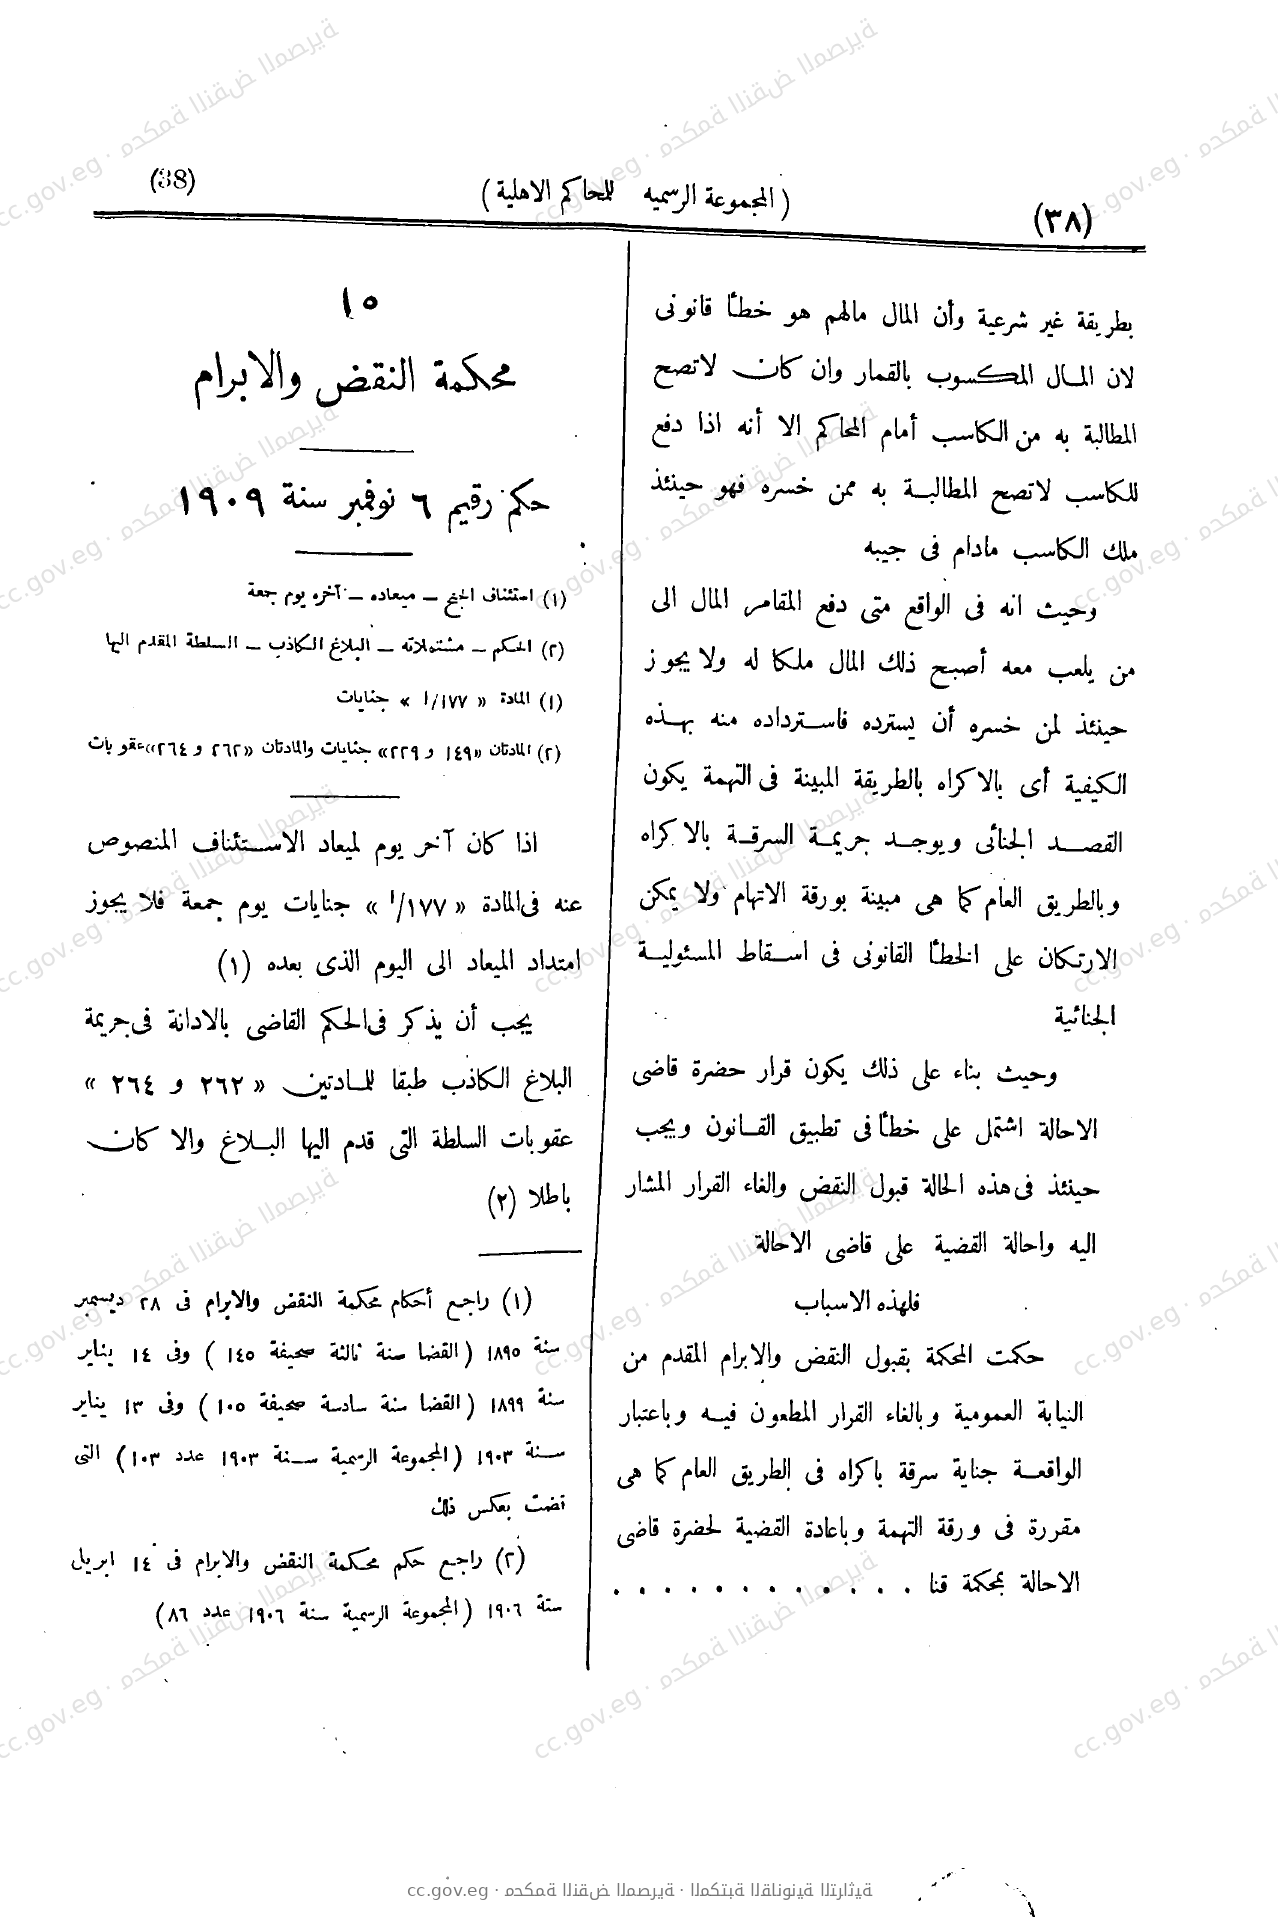 (٣٨)
( المجموعة الرسميه للمحاكم الاهلية )
(38)
بطريقة غير شرعية وأن المال مالهم هو خطأ قانونى
لان المال المكسوب بالقمار وان كان لاتصح
المطالبة به من الكاسب أمام المحاكم الا أنه اذا دفع
للكاسب لاتصح المطالبة به ممن خسره فهو حينئذ
ملك الكاسب مادام فى جيبه
وحيث انه فى الواقع متى دفع المقامر المال الى
من يلعب معه أصبح ذلك المال ملكا له ولا يجوز
حينئذ لمن خسره أن يسترده فاسترداده منه بهذه
الكيفية أى بالاكراه بالطريقة المبينة فى التهمة يكون
القصد الجنائى ويوجد جريمة السرقة بالاكراه
وبالطريق العام كما هى مبينة بورقة الاتهام ولا يمكن
الارتكان على الخطأ القانونى فى اسقاط المسئولية
الجنائية
وحيث بناء على ذلك يكون قرار حضرة قاضى
الاحالة اشتمل على خطأ فى تطبيق القانون ويجب
حينئذ فى هذه الحالة قبول النقض والغاء القرار المشار
اليه واحالة القضية على قاضى الاحالة
فلهذه الاسباب
حكمت المحكمة بقبول النقض والابرام المقدم من
النيابة العمومية وبالغاء القرار المطعون فيه وباعتبار
الواقعة جناية سرقة باكراه فى الطريق العام كما هى
مقررة فى ورقة التهمة وباعادة القضية لحضرة قاضى
الاحالة بمحكمة قنا . . . . . . . . . . . .
١٥
محكمة النقض والابرام
حكم رقيم ٦ نوفمبر سنة ١٩٠٩
(١) استئناف الجنح – ميعاده – آخره يوم جمعة
(٢) الحكم – مشتملاته – البلاغ الكاذب – السلطة المقدم اليها
(١) المادة « ١٧٧/ا » جنايات
(٢) المادتان «١٤٩ و ٢٢٩» جنايات والمادتان «٢٦٢ و ٢٦٤» عقوبات
اذا كان آخر يوم لميعاد الاستئناف المنصوص
عنه فى المادة « ١٧٧/ا » جنايات يوم جمعة فلا يجوز
امتداد الميعاد الى اليوم الذى بعده (١)
يجب أن يذكر فى الحكم القاضى بالادانة فى جريمة
البلاغ الكاذب طبقا للمادتين « ٢٦٢ و ٢٦٤ »
عقوبات السلطة التى قدم اليها البلاغ والا كان
باطلا (٢)
(١) راجع أحكام محكمة النقض والابرام فى ٢٨ ديسمبر
سنة ١٨٩٥ ( القضا سنة ثالثة صحيفة ١٤٥ ) وفى ١٤ يناير
سنة ١٨٩٩ ( القضا سنة سادسة صحيفة ١٠٥ ) وفى ١٣ يناير
سنة ١٩٠٣ ( المجموعة الرسمية سنة ١٩٠٣ عدد ١٠٣ ) التى
قضت بعكس ذلك
(٢) راجع حكم محكمة النقض والابرام فى ١٤ ابريل
سنة ١٩٠٦ ( المجموعة الرسمية سنة ١٩٠٦ عدد ٨٦ )
cc.gov.eg · محكمة النقض المصرية · المكتبة القانونية التراثية